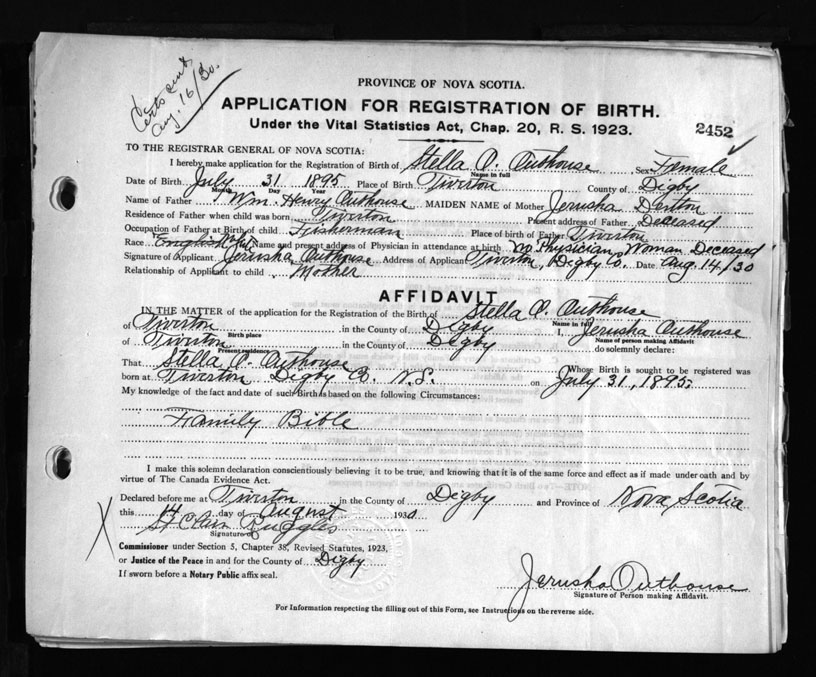 Certs sent
Aug. 16/30.
PROVINCE OF NOVA SCOTIA.
APPLICATION FOR REGISTRATION OF BIRTH.
Under the Vital Statistics Act, Chap. 20, R. S. 1923.
2452
TO THE REGISTRAR GENERAL OF NOVA SCOTIA:
I hereby make application for the Registration of Birth of Stella O. Outhouse Sex Female
Name in full
Date of Birth July 31 1895 Place of Birth Tiverton County of Digby
Month Day Year
Name of Father Wm. Henry Outhouse MAIDEN NAME of Mother Jerusha Denton
Residence of Father when child was born Tiverton Present address of Father Deceased
Occupation of Father at Birth of child Fisherman Place of birth of Father Tiverton
Race English Name and present address of Physician in attendance at birth No Physician, Woman Deceased
Signature of Applicant Jerusha Outhouse Address of Applicant Tiverton, Digby Co. Date Aug. 14/30
Relationship of Applicant to child Mother
AFFIDAVIT
IN THE MATTER of the application for the Registration of the Birth of Stella O. Outhouse
Name in full
of Tiverton in the County of Digby I, Jerusha Outhouse
Birth place Name of person making Affidavit
of Tiverton in the County of Digby do solemnly declare:
Present residence
That Stella O. Outhouse Whose Birth is sought to be registered was
born at Tiverton Digby Co. N.S. on July 31, 1895.
My knowledge of the fact and date of such Birth is based on the following Circumstances:
Family Bible
I make this solemn declaration conscientiously believing it to be true, and knowing that it is of the same force and effect as if made under oath and by
virtue of The Canada Evidence Act.
Declared before me at Tiverton in the County of Digby and Province of Nova Scotia
this 14 day of August 1930
St Clair Ruggles
Signature of
Commissioner under Section 5, Chapter 38, Revised Statutes, 1923,
or Justice of the Peace in and for the County of Digby
If sworn before a Notary Public affix seal.
Jerusha Outhouse
Signature of Person making Affidavit.
For Information respecting the filling out of this Form, see Instructions on the reverse side.